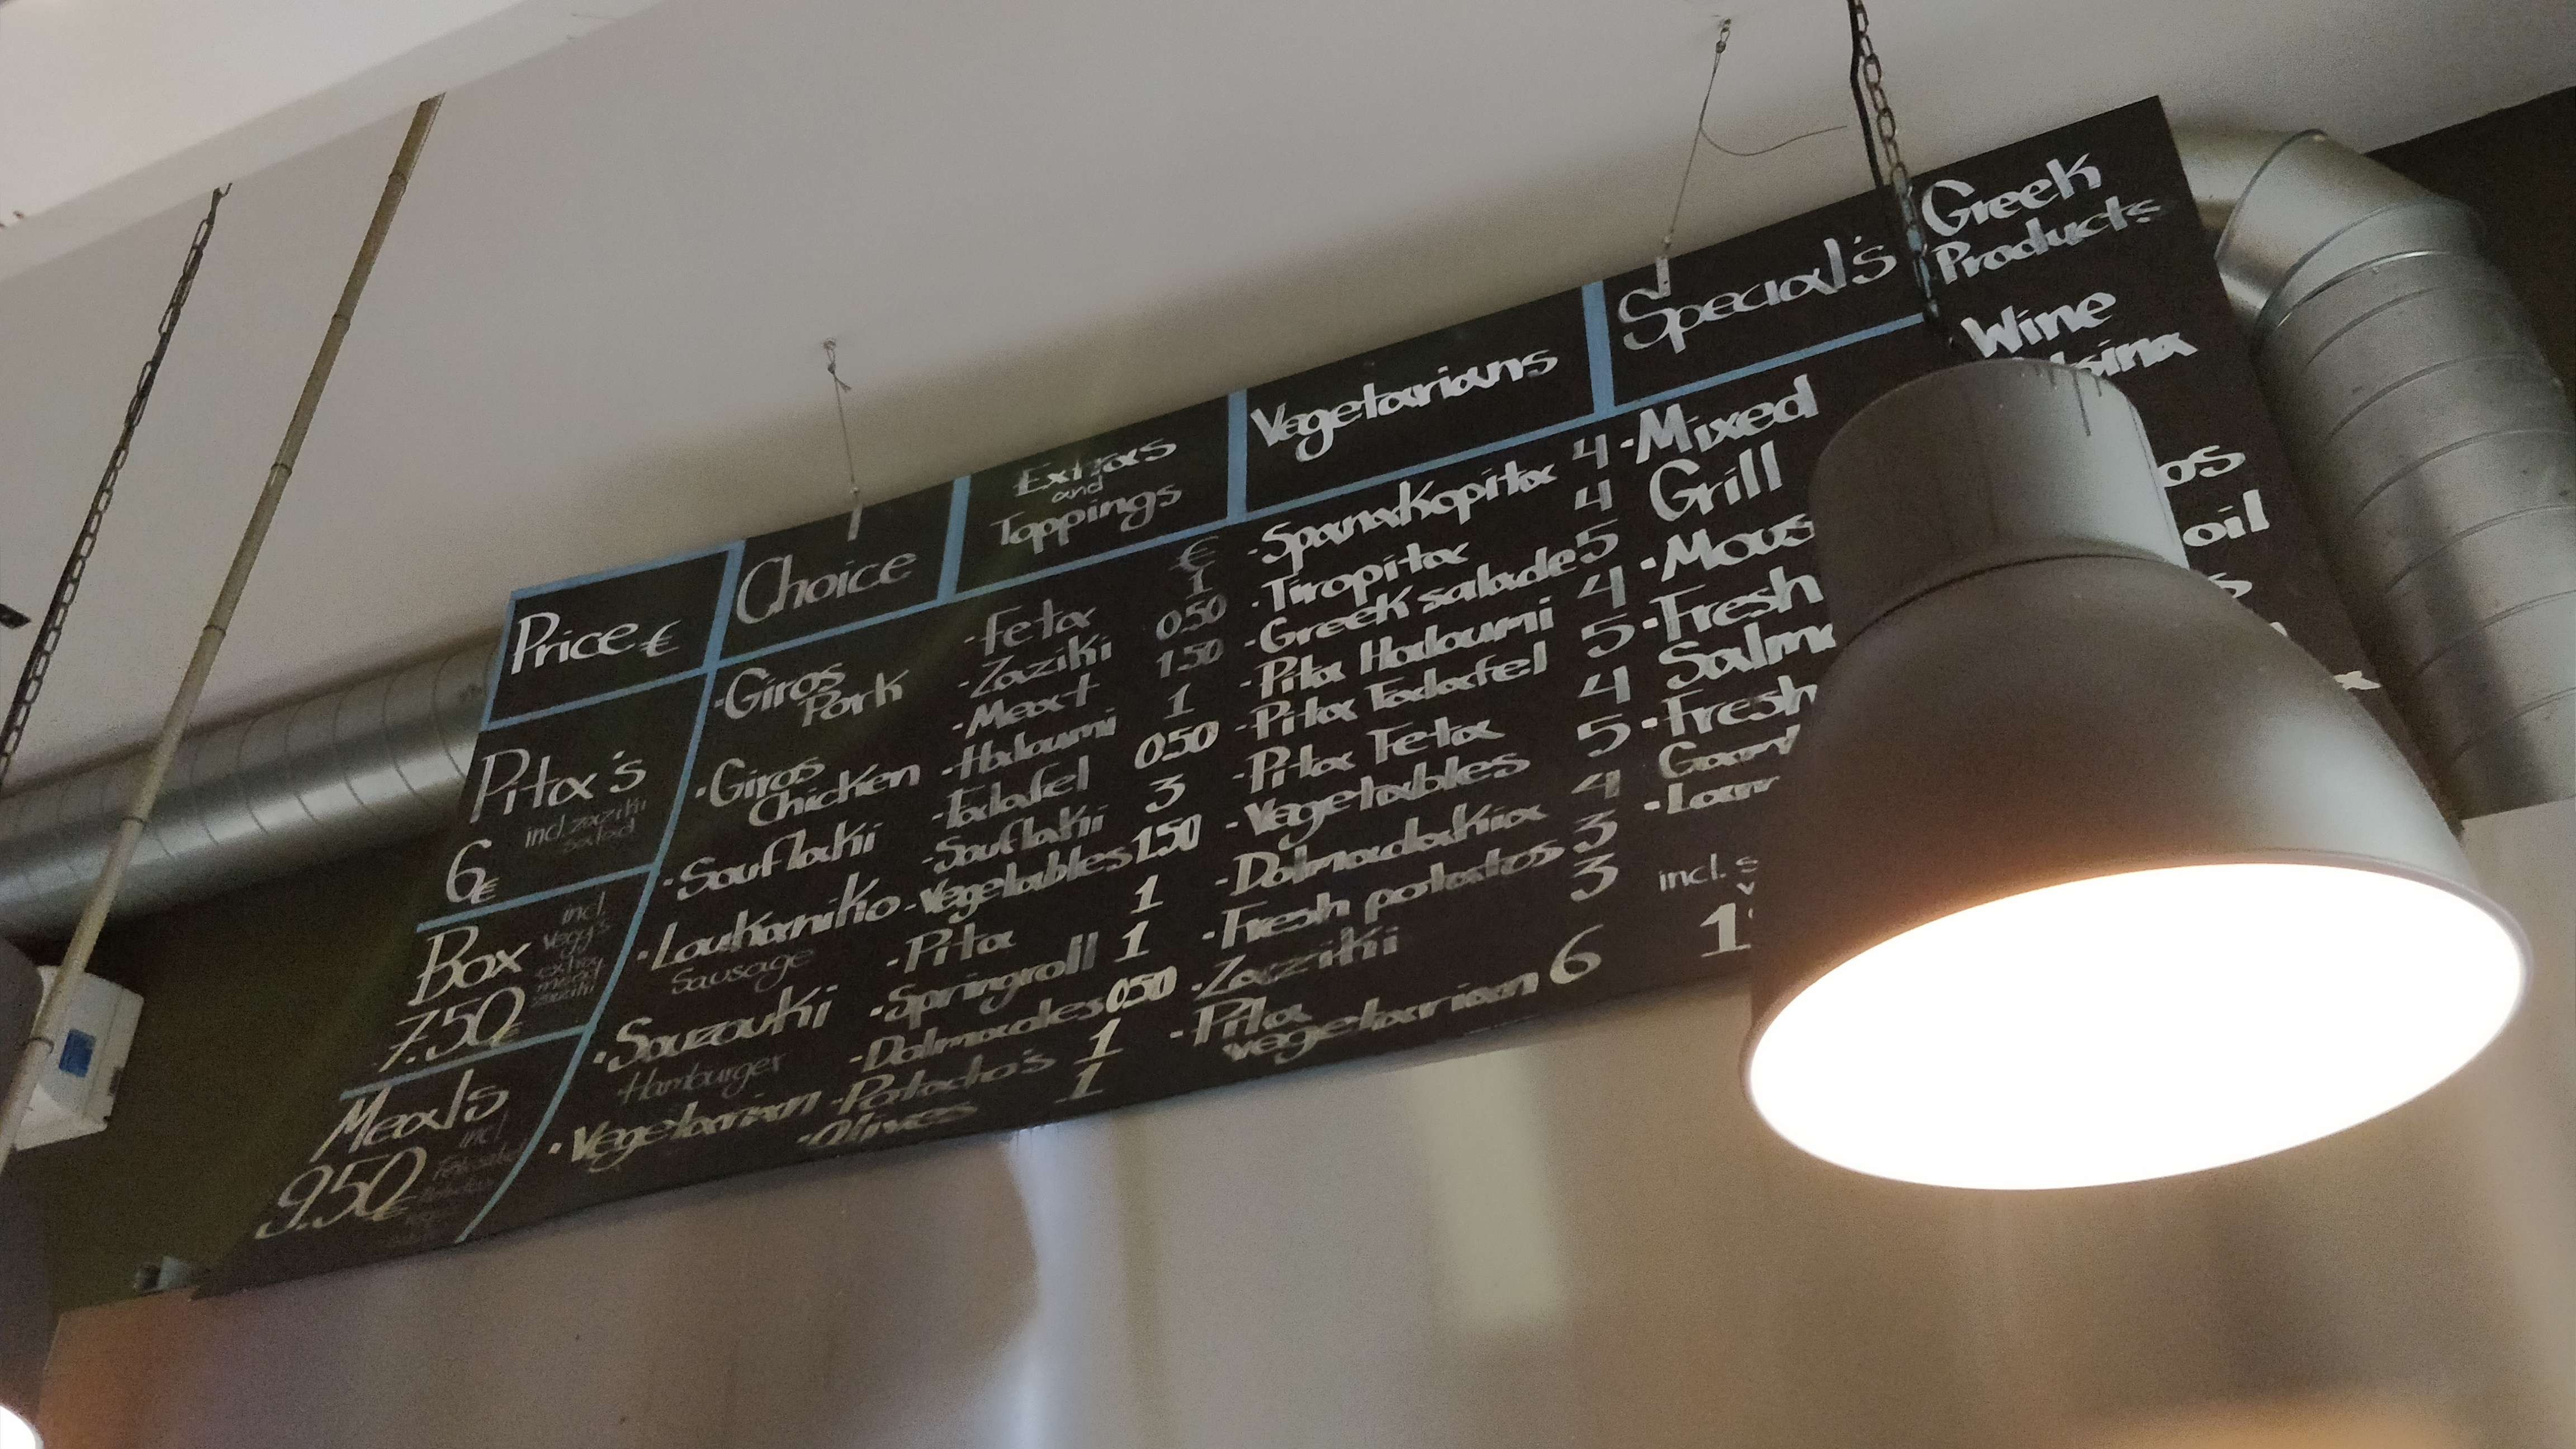 Price €
Pita's
incl. zaziki
salad
6€
Box
incl.
vegg's
extra
meat
zaziki
7.50€
Meals
incl.
9.50€
Choice
-Giros
Pork
·Giros
Chicken
·Souflaki
·Loukaniko
Sausage
·Souzouki
Hamburger
·Vegetarian
Extras
and
Toppings
€
-Feta 1
-Zaziki 0.50
-Meat 1.50
-Haloumi 1
-Falafel 0.50
-Souflaki 3
-Vegetables 1.50
-Pita 1
-Springroll 1
-Dolmades 0.50
-Potacto's 1
-Olives 1
Vegetarians
-Spanakopita 4
·Tiropita 4
-Greek salade 5
-Pita Haloumi 4
-Pita Falafel 5
-Pita Feta 4
-Vegetables 5
-Dolmadakia 4
-Fresh potatos 3
-Zaziki 3
-Pita
vegetarian 6
Special's
-Mixed
Grill
-Fresh
-Fresh
incl.
Greek
Products
Wine
oil